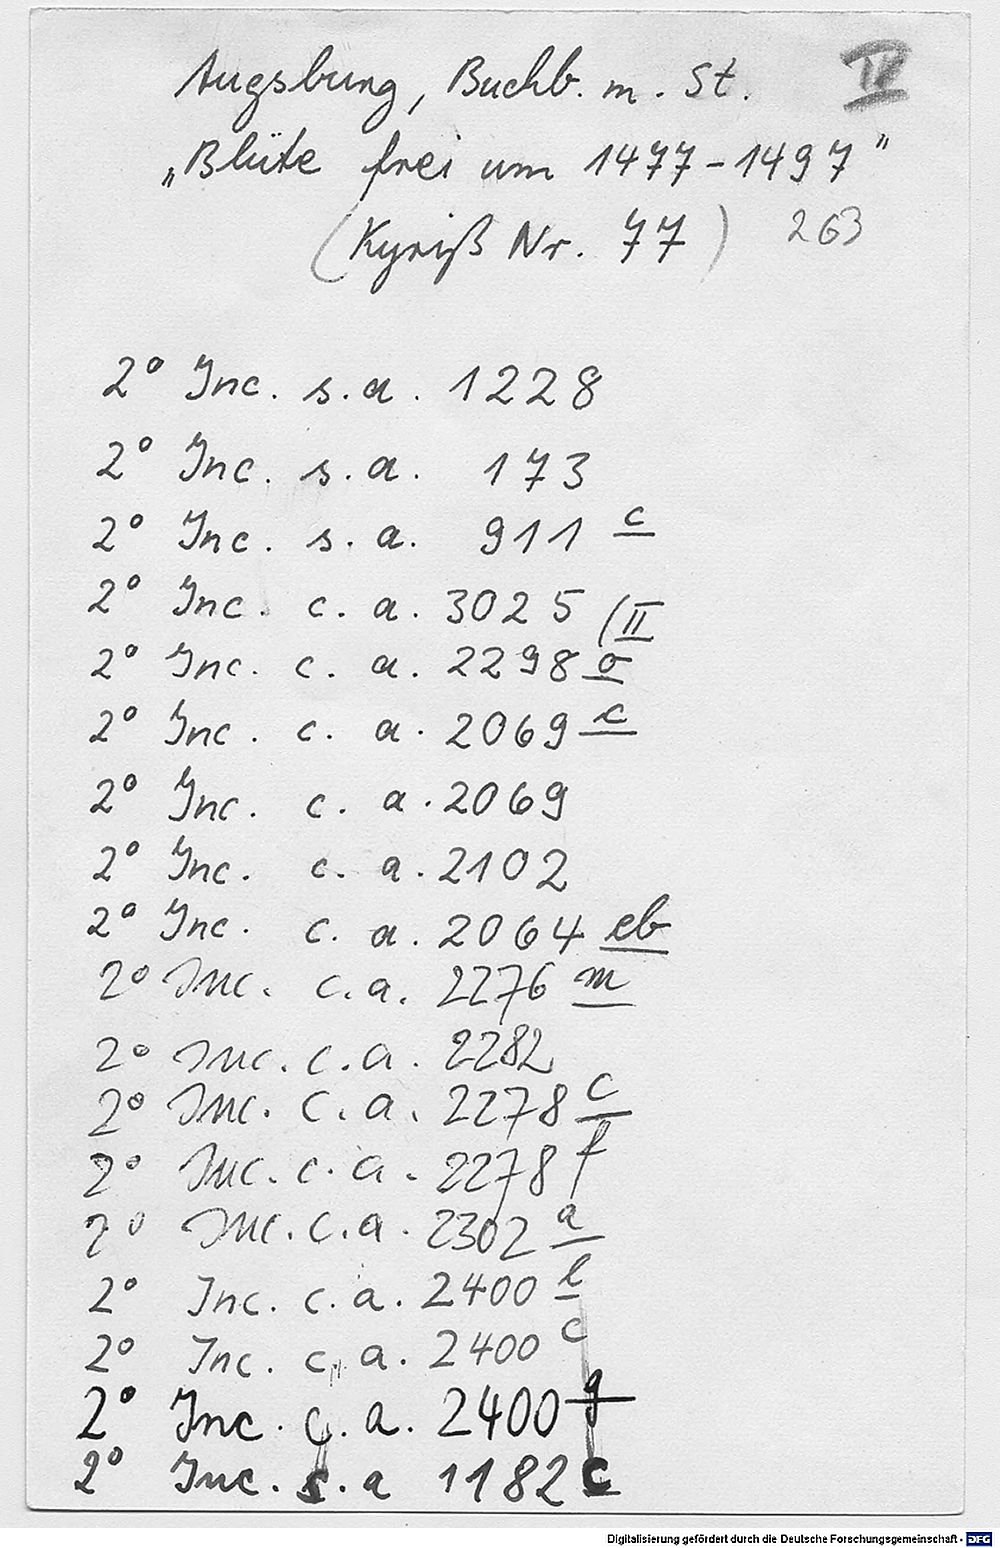 Augsburg, Buchb. m. St. IV
„Blüte frei um 1477-1497"
(Kyriß Nr. 77) 263
2° Inc. s.a. 1228
2° Inc. s.a. 173
2° Inc. s.a. 911 c
2° Inc. c.a. 3025 (II
2° Inc. c.a. 2298 o
2° Inc. c.a. 2069 c
2° Inc. c.a. 2069
2° Inc. c.a. 2102
2° Inc. c.a. 2064 eb
2° Inc. c.a. 2276 m
2° Inc. c.a. 2282
2° Inc. c.a. 2278 c
2° Inc. c.a. 2278 f
2° Inc. c.a. 2302 a
2° Inc. c.a. 2400 l
2° Inc. c.a. 2400 c
2° Inc. c.a. 2400 g
2° Inc. s.a 1182 c
Digitalisierung gefördert durch die Deutsche Forschungsgemeinschaft - DFG